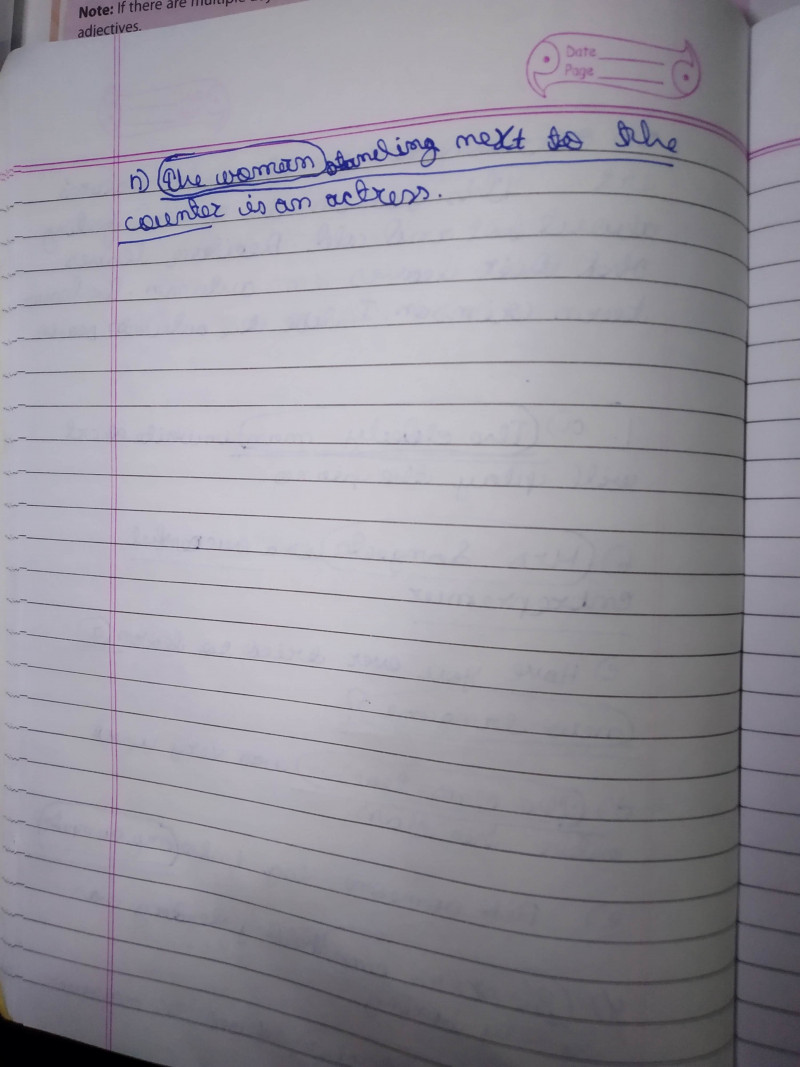 Note: If there are multiple
adjectives.
Date
Page
n) The woman standing next to the
counter is an actress.